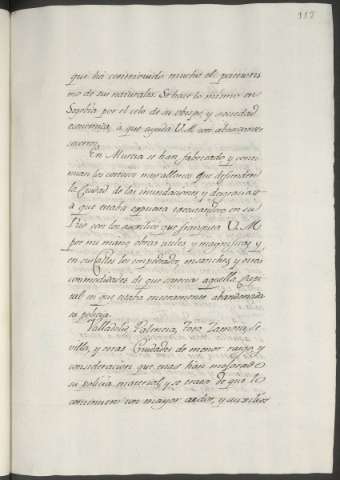 117
que há contribuido mucho el patriotis
mo de sus naturales. Se hace lo mismo en
Segobia por el celo de su obispo, y sociedad
economica, a que ayuda V.M. con abundantes
socorros.
En Murcia se han fabricado y conti-
nuan los costosos murallones que defienden
la Ciudad de las inundaciones y desgracias
a que estaba expuesta executandose en su
Rio con los auxilios que franquea V.M.
por mi mano obras utiles y magnificas y
en sus Calles los empedrados, ensanches, y otras
commodidades de que carecia aquella Capi-
tal en que estaba enteramente abandonada
su policia.
Valladolid, Palencia, Toro, Zamora, Se-
villa, y otras Ciudades de menor rango y
consideracion que estas han mejorado
su policia material, y se trata de que lo
continuen con mayor ardor, y auxilios